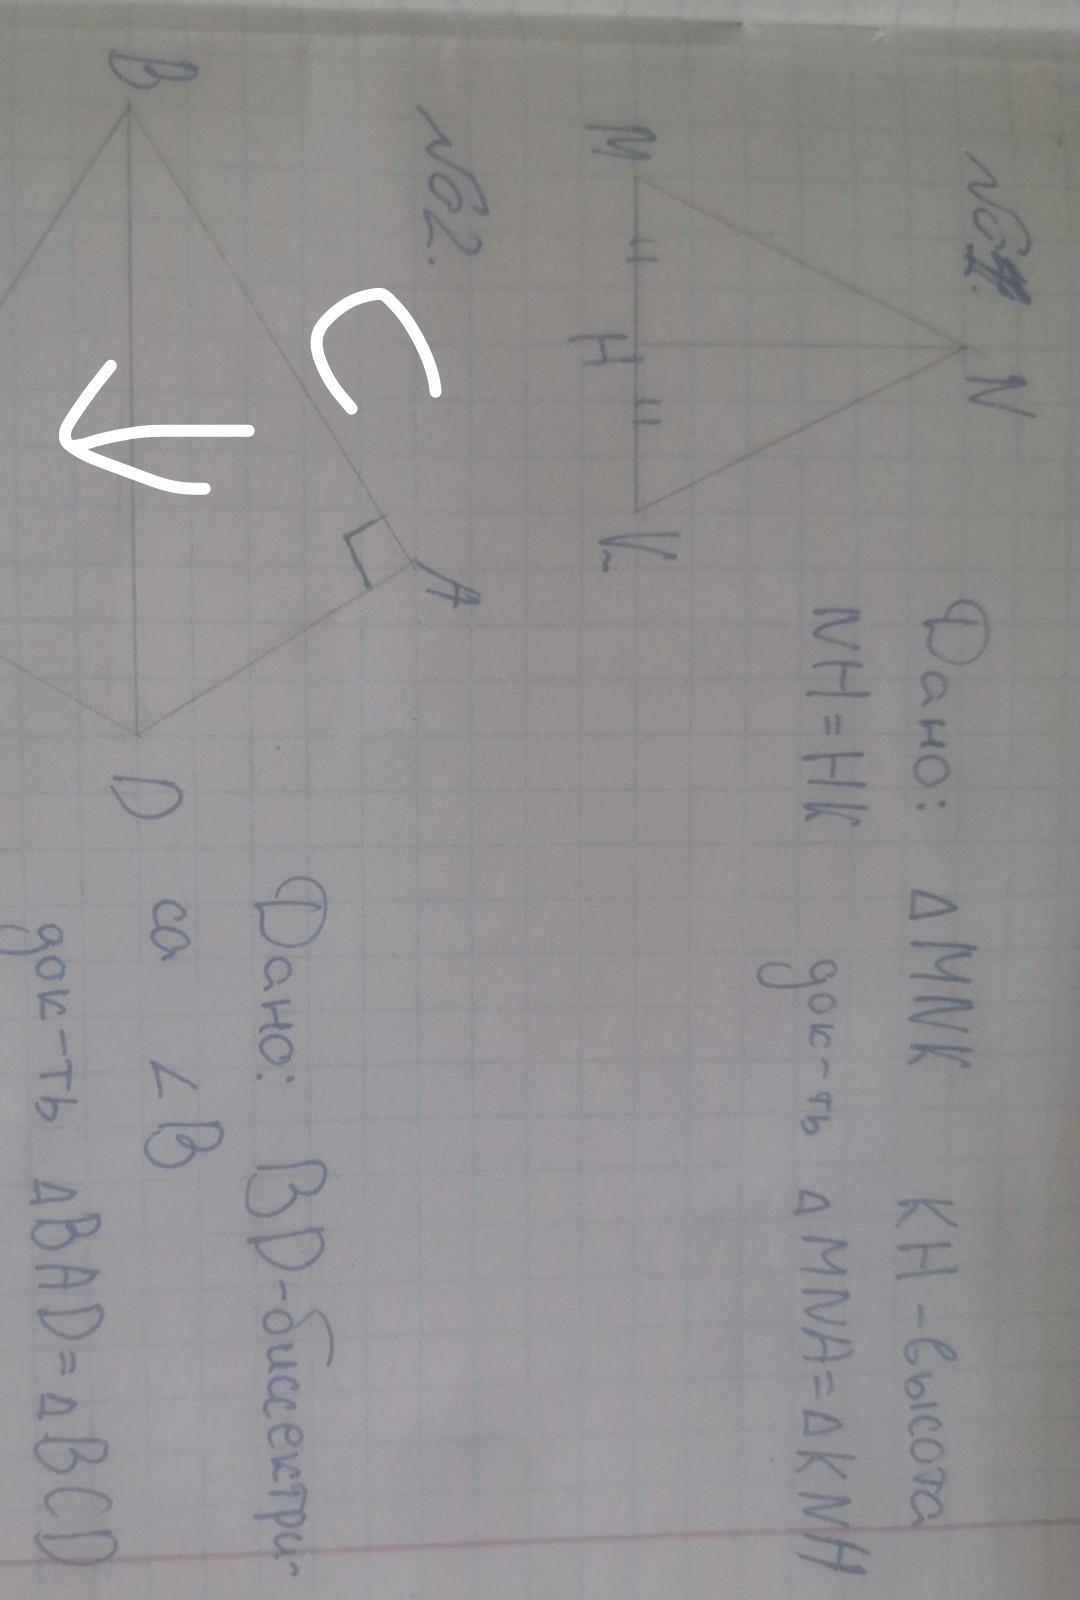 №1.
N
M
H
K
Дано: Δ MNK KH - высота
NH = HK док-ть Δ MNH = Δ KNH
№2.
A
B
C
D
Дано: BD - биссектри-
са ∠B
док-ть Δ BAD = Δ BCD